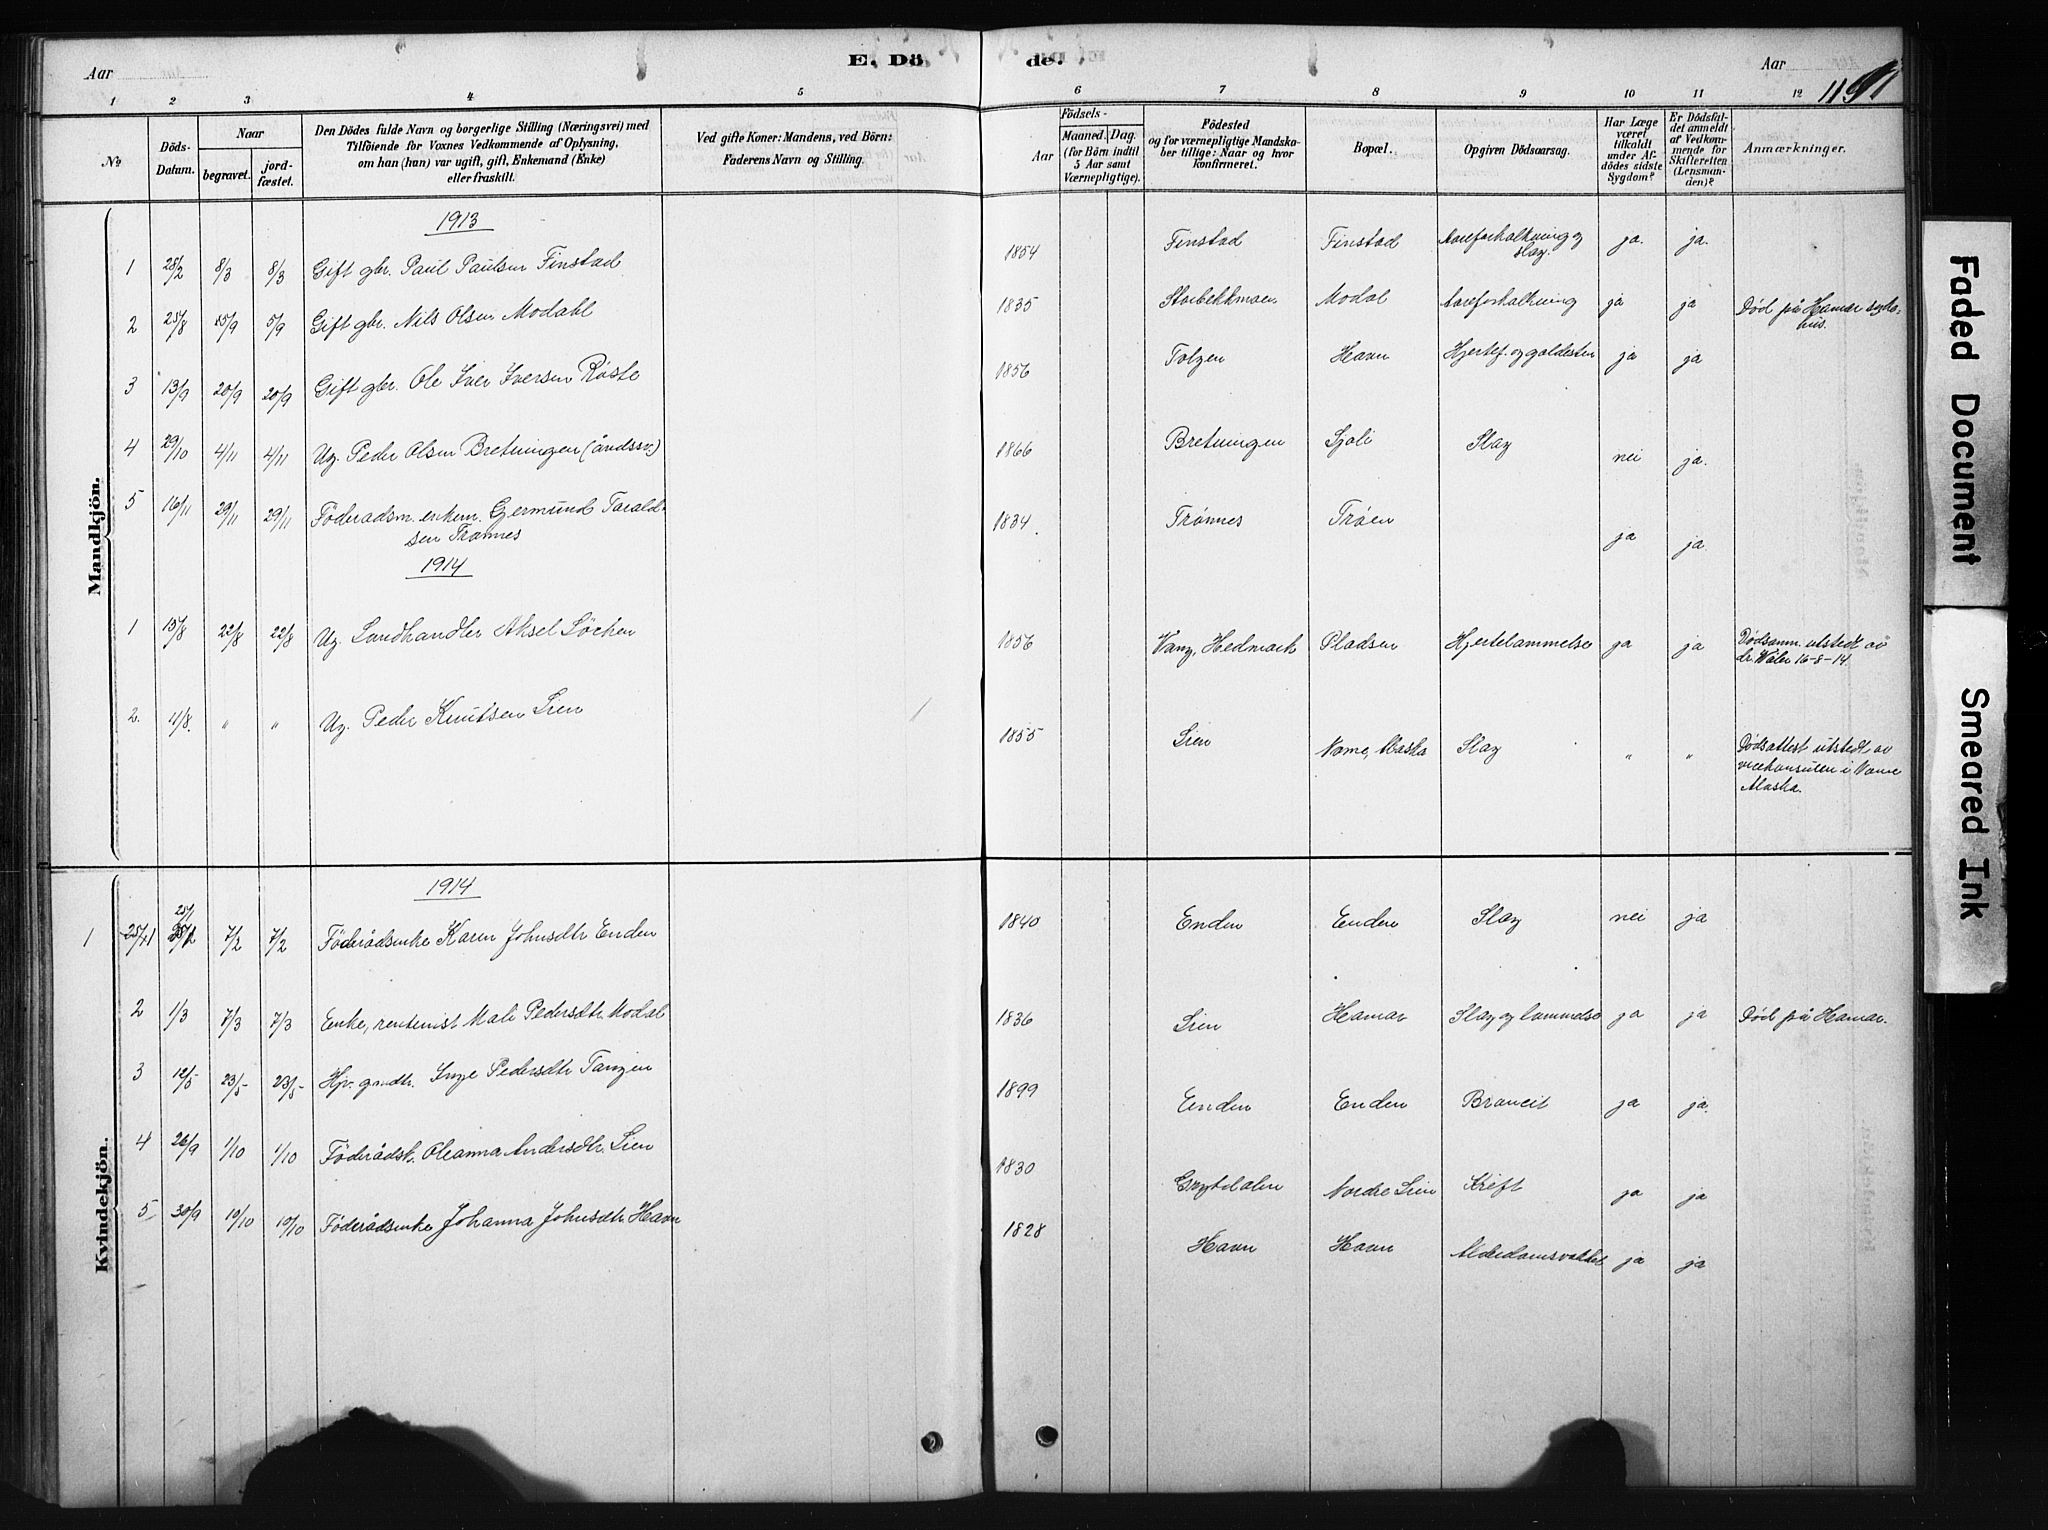 Aar
E. Dö
de.
Aar
119
1 2 3 4 5 6 7 8 9 10 11 12
No
Döds-Datum.
Naar
begravet.
jord-fæstet.
Den Dödes fulde Navn og borgerlige Stilling (Næringsvei) med
Tilföiende for Voxnes Vedkommende af Oplysning,
om han (hun) var ugift, gift, Enkemand (Enke)
eller fraskilt.
Ved gifte Koner: Mandens, ved Börn:
Faderens Navn og Stilling.
Födsels-
Aar
Maaned. Dag.
(for Börn indtil
5 Aar samt
Værnepligtige).
Födested
og for værnepligtige Mandska-
ber tillige: Naar og hvor
konfirmeret.
Bopæl.
Opgiven Dödsaarsag.
Har Læge
været
tilkaldt
under Af-
dödes sidste
Sygdom?
Er Dödsfal-
det anmeldt
af Vedkom-
mende for
Skifteretten
(Lensman-
den)?
Anmærkninger.
Mandkjön.
1913
1 28/2 8/3 8/3 Gift gbr. Paul Paulsen Finstad 1854 Finstad Finstad Aareforkalkning og slag. ja. ja.
2 25/8 5/9 5/9 Gift gbr. Nils Olsen Modahl 1835 Storbekkmoen Modal Aareforkalkning ja ja Död på Hamar syke-
hus.
3 13/9 20/9 20/9 Gift gbr. Ole Iver Iversen Röste 1856 Tolgen Havn Hjertef. og galdesten ja ja
4 29/10 4/11 4/11 Ug. Peder Olsen Bretningen (åndssv.) 1866 Bretningen Sjoli Slag nei ja.
5 16/11 29/11 29/11 Föderadsm. enkem. Gjermund Tarald-
sen Trönnes 1834 Trönnes Tröen ja ja.
1914
1 15/8 22/8 22/8 Ug. Landhandler Aksel Löchen 1856 Vang, Hedmark Pladsen Hjertelammelse ja ja Dødsanm. utstedt av
dr. Wäler 16-8-14.
2. 4/8. " " Ug. Peder Knutsen Lien 1855 Lien Nome, Alaska Slag " " Dødsattest utstedt av
vicekonsulen i Nome
Alaska.
Kvindekjön.
1914
1 25/1 7/2 7/2 Föderådsenke Karen Johnsdtr Enden 1840 Enden Enden Slag nei ja
2 1/3 7/3 7/3 Enke, rentenist Mali Pedersdtr. Modal 1836 Lien Hamar Slag og lammelse ja ja Död på Hamar.
3 12/5 23/5 23/5 Hjv. gmdtr. Inge Pedersdtr Tangen 1899 Enden Enden Broncit ja ja.
4 26/9 1/10 1/10 Föderådsk. Oleanna Andersdtr. Lien 1830 Grytdalen Nordre Lien Kreft ja ja
5 30/9 10/10 10/10 Föderådsenke Johanna Johnsdtr. Havn 1828 Havn Havn Alderdomsvakhet ja ja
Faded Document
Smeared Ink